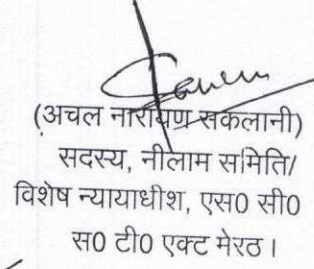 (अचल नारायण सकलानी)
सदस्य, नीलाम समिति/
विशेष न्यायाधीश, एस0 सी0
स0 टी0 एक्ट मेरठ ।